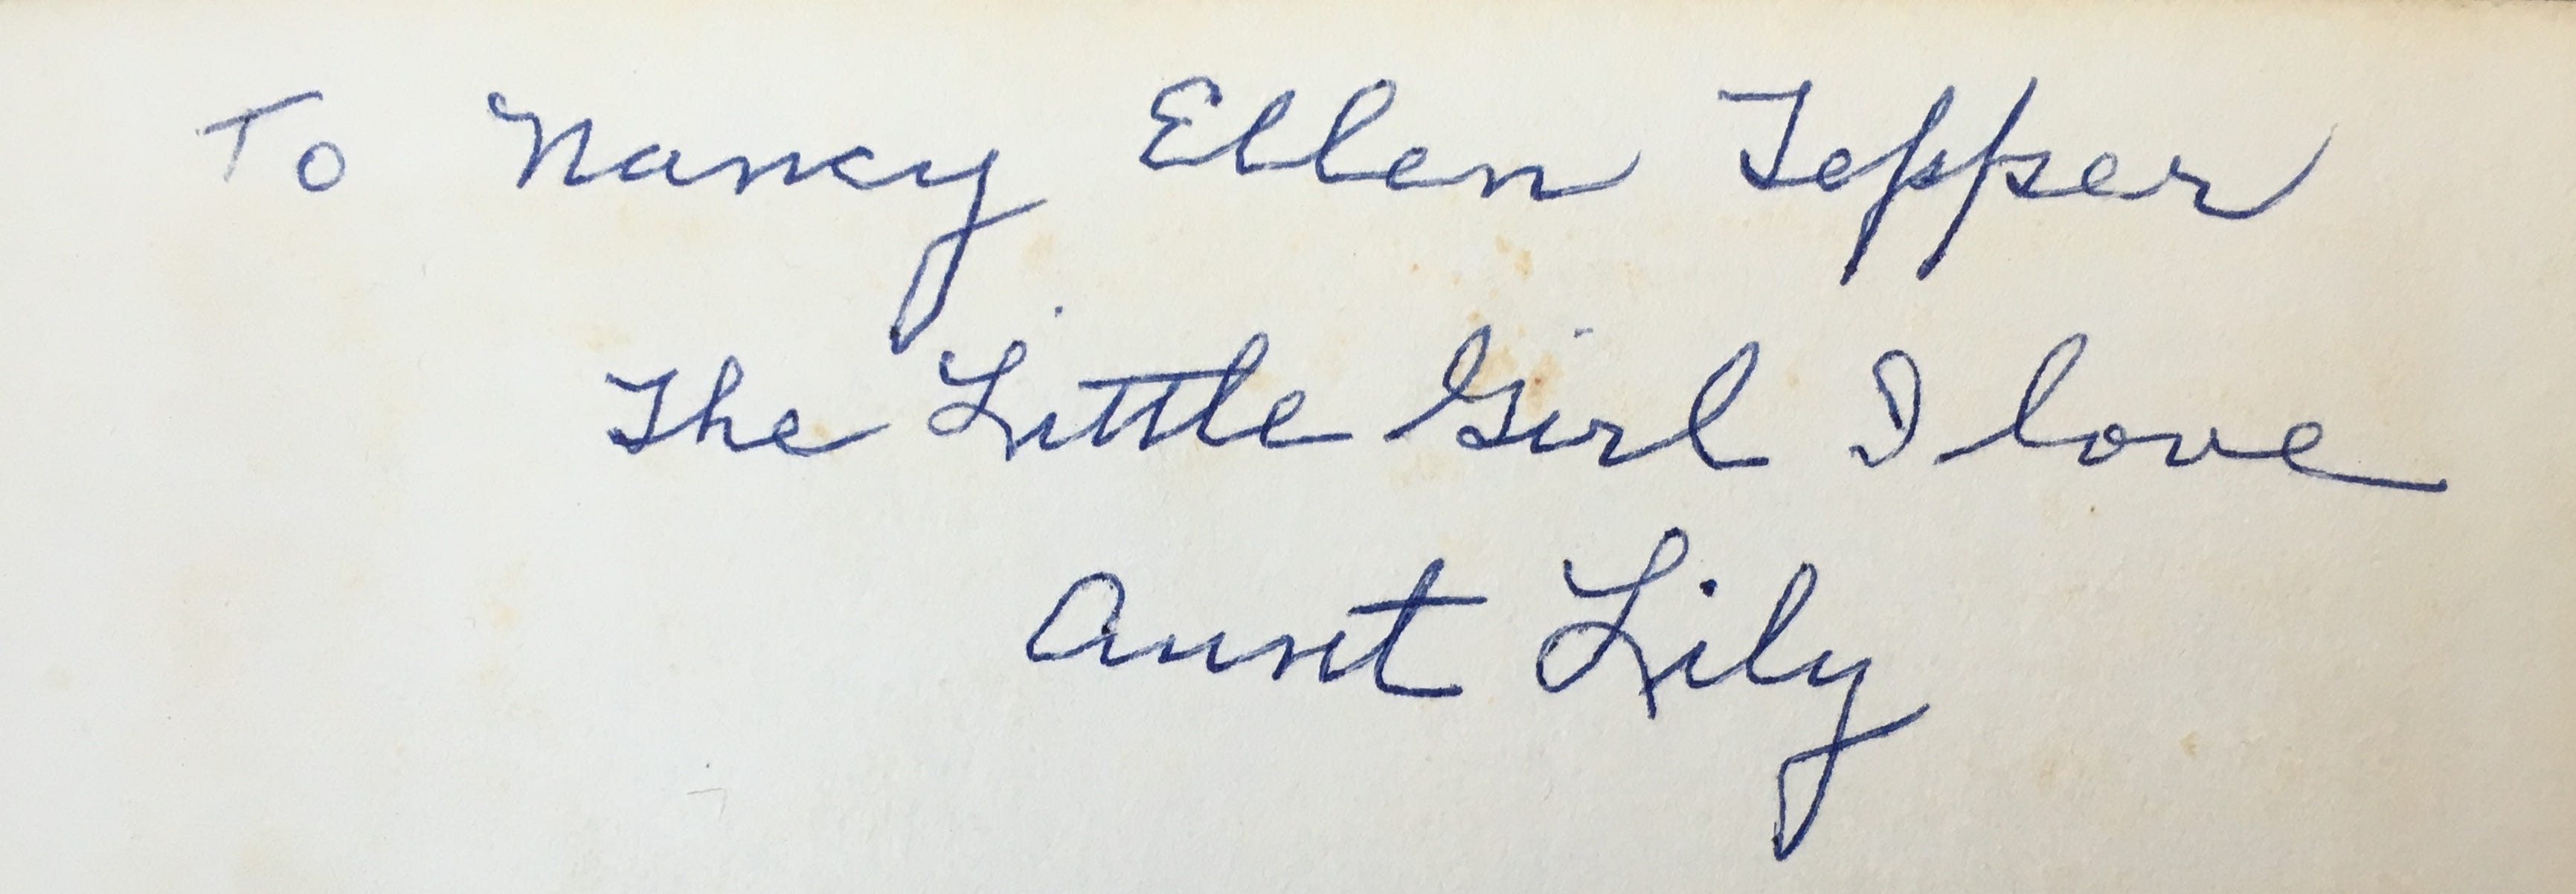 To Nancy Ellen Tepper
The Little Girl I love
Aunt Lily